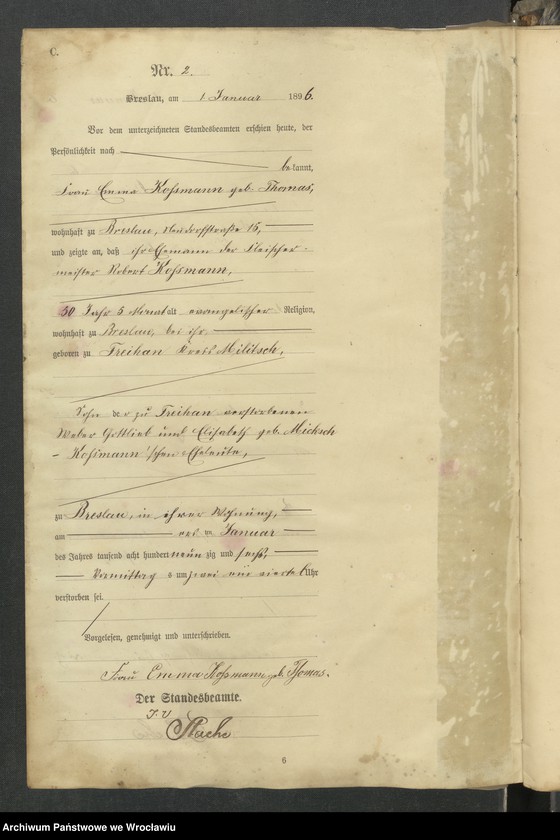 C.
Nr. 2.
Breslau, am 1 Januar 1896.
Vor dem unterzeichneten Standesbeamten erschien heute, der
Persönlichkeit nach
bekannt,
Frau Emma Koßmann geb. Thomas,
wohnhaft zu Breslau, Neudorfstraße 15,
und zeigte an, daß ihr Ehemann der Fleischer-
meister Robert Koßmann,
50 Jahr 5 Monat alt evangelischer Religion,
wohnhaft zu Breslau, bei ihr,
geboren zu Freihan Kreis Militsch,
Sohn der zu Freihan verstorbenen
Weber Gottlieb und Elisabeth geb.
- Koßmann'schen Eheleute,
zu Breslau, in ihrer Wohnung,
am ersten Januar
des Jahres tausend acht hundert neun zig und sechs,
Vormittags um zwei ein viertel Uhr
verstorben sei.
Vorgelesen, genehmigt und unterschrieben.
Frau Emma Koßmann geb. Thomas.
Der Standesbeamte.
J. V
6
Archiwum Państwowe we Wrocławiu